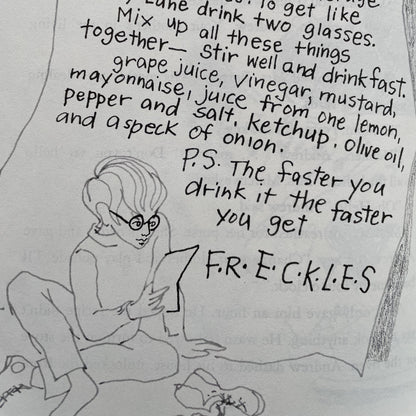 To get like
Lane drink two glasses.
Mix up all these things
together— stir well and drink fast.
grape juice, vinegar, mustard,
mayonnaise, juice from one lemon,
pepper and salt, ketchup, olive oil,
and a speck of onion.
P.S. The faster you
drink it the faster
you get
F·R·E·C·K·L·E·S